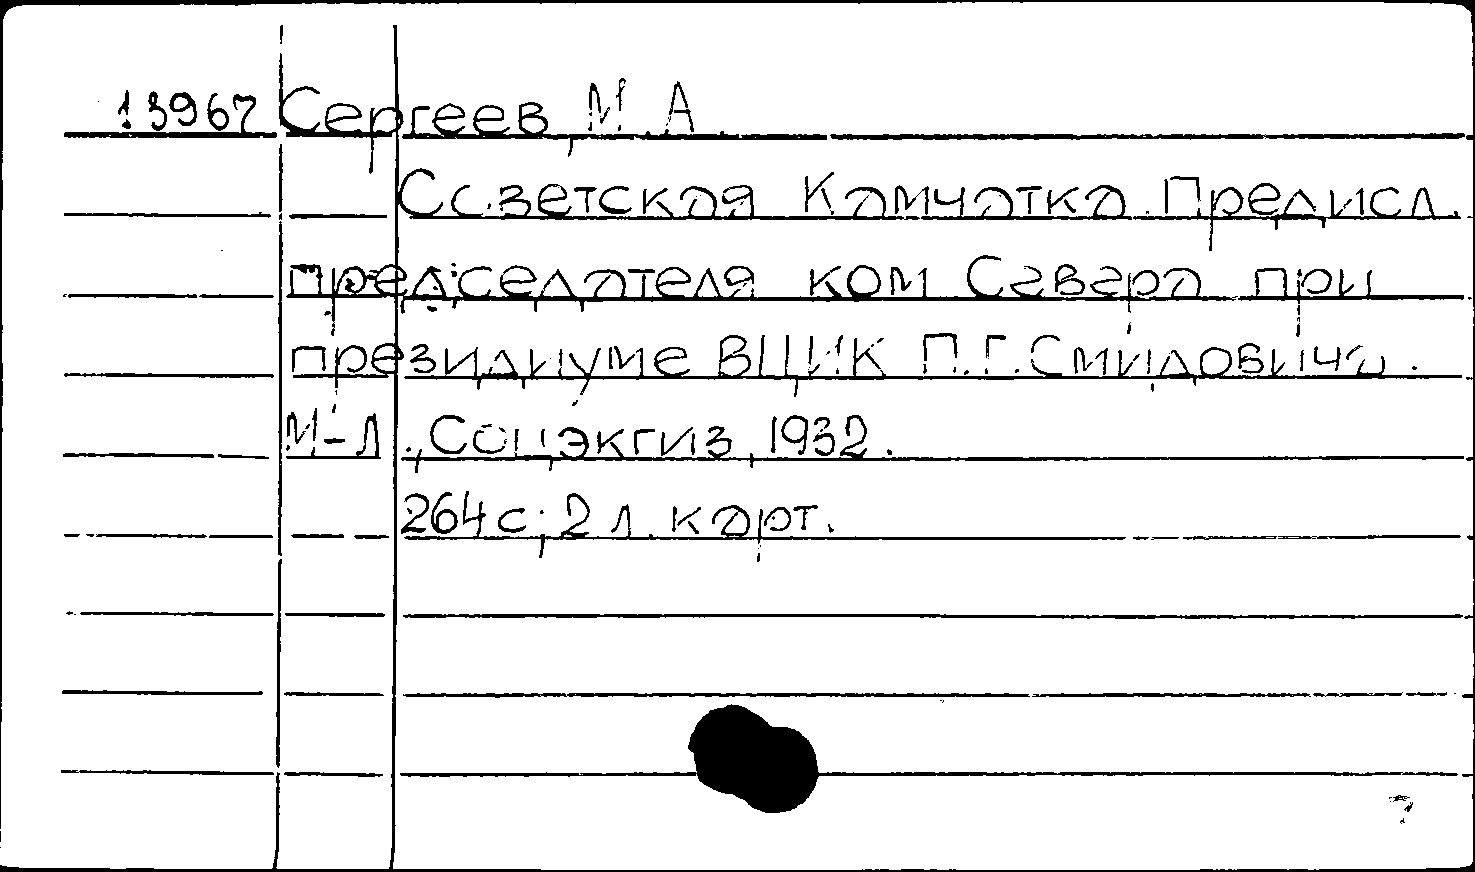 13967 Сергеев, М.А.
Советская Камчатка. Предисл.
председателя ком. Севера при
президиуме ВЦИК П.Г.Смидовича.
М-Л., Соцэкгиз, 1932.
264с; 2 л. карт.